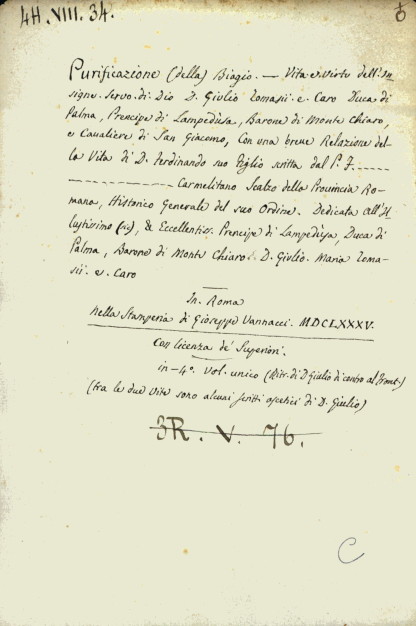 4H. VIII. 34.
Purificazione (della) Biagio. — Vita e virtù dell'In
signe Servo di Dio D. Giulio Tomasii e Caro Duca di
Palma, Prencipe di Lampedùsa, Barone di Monte Chiaro,
e Cavaliere di San Giacomo, Con una breve Relazione del-
la Vita di D. Ferdinando suo figlio scritta dal P. F. -----
-------------- Carmelitano Scalzo della Provincia Ro-
mana, Historico Generale del suo Ordine. Dedicata All'Il
lustissimo (sic), & Eccellentiss. Prencipe di Lampedùsa, Duca di
Palma, Barone di Monte Chiaro. D. Giulio Maria Toma-
sii e Caro
In Roma
nella Stamperia di Gioseppe Vannacci. MDCLXXXV.
Con licenza de' Superiori.
in-4°. Vol. unico (Ritr. di D Giulio di contro al Front.)
(tra le due Vite sono alcuni scritti ascetici di D. Giulio)
3R. V. 76.
C